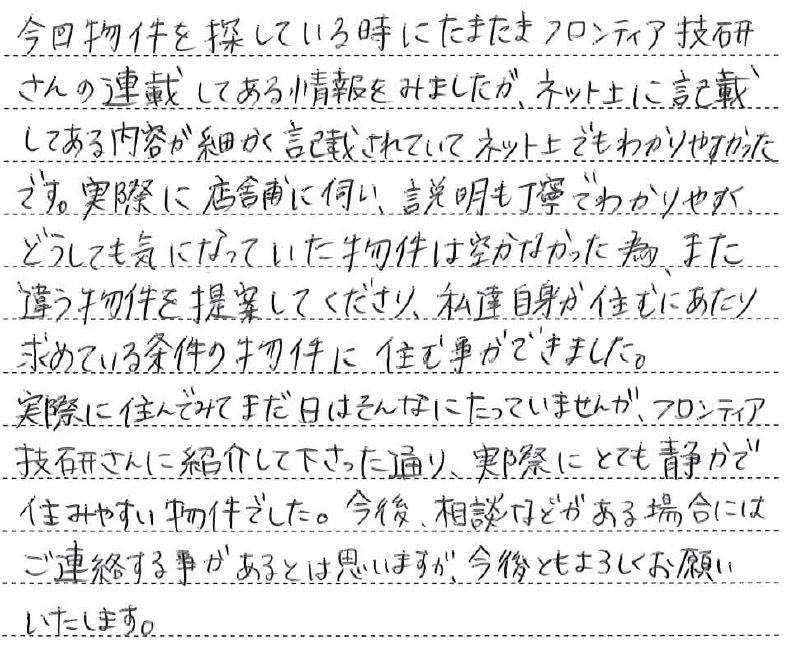 今回物件を探している時にたまたまフロンティア技研
さんの連載してある情報をみましたが、ネット上に記載
してある内容が細かく記載されていてネット上でもわかりやすかった
です。実際に店舗に伺い、説明も丁寧でわかりやすく、
どうしても気になっていた物件は空かなかった為、また
違う物件を提案してくださり、私達自身が住むにあたり
求めている条件の物件に住む事ができました。
実際に住んでみてまだ日はそんなにたっていませんが、フロンティア
技研さんに紹介して下さった通り、実際にとても静かで
住みやすい物件でした。今後、相談などがある場合には
ご連絡する事があるとは思いますが、今後ともよろしくお願い
いたします。